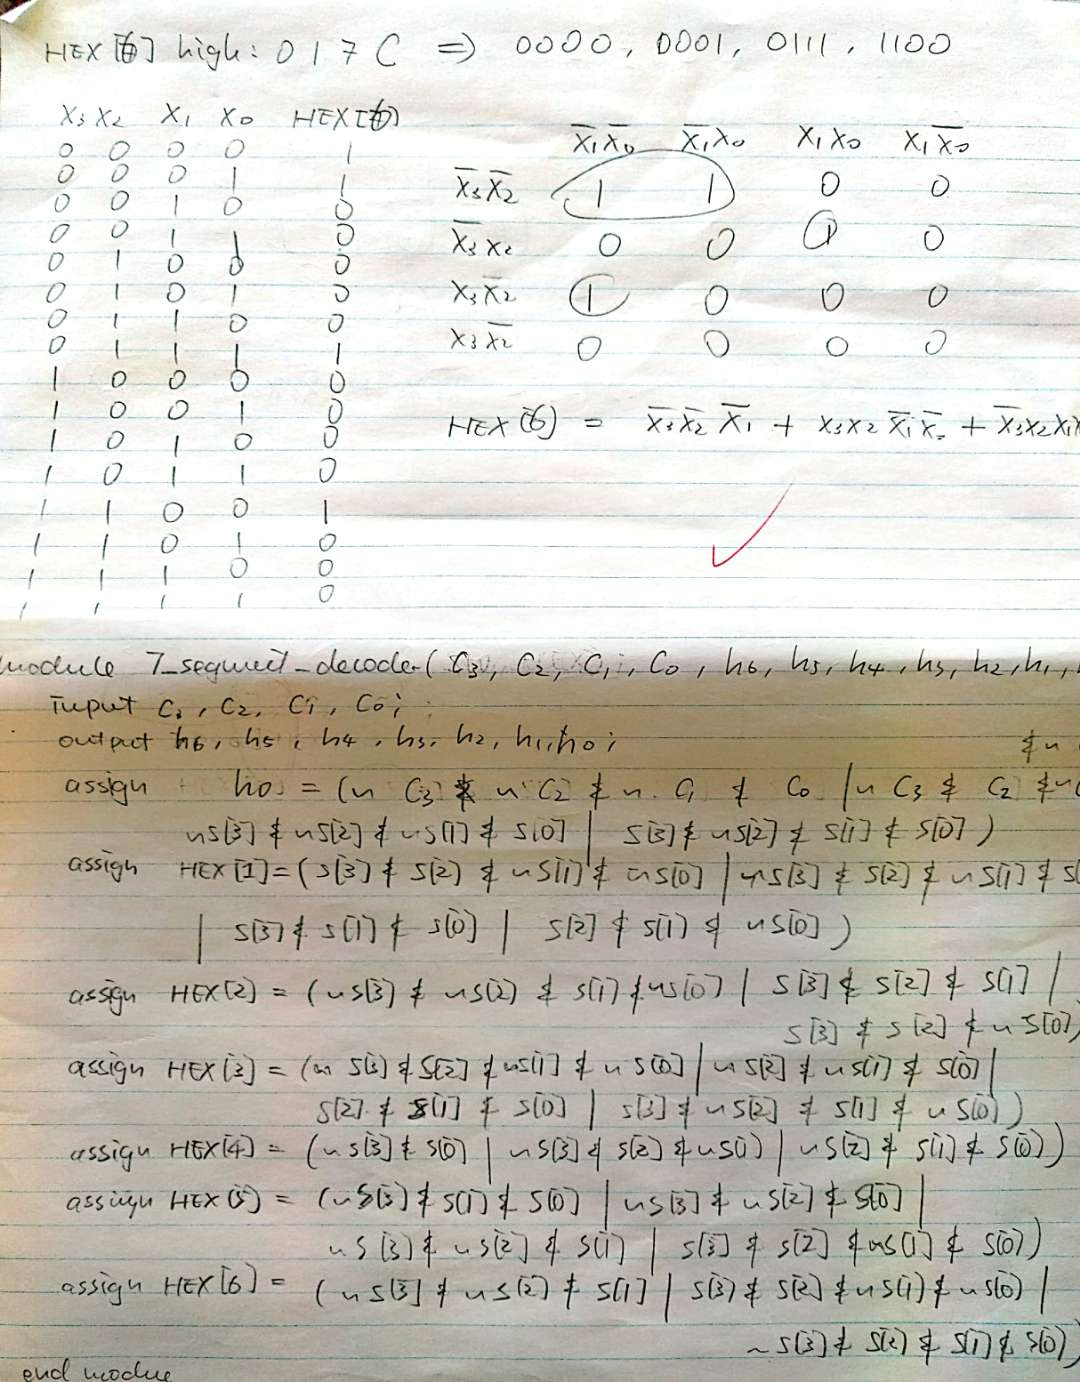 HEX[6] high: 0 1 7 C ⇒ 0000, 0001, 0111, 1100
X₃ X₂ X₁ X₀ HEX[6]
0 0 0 0 1
0 0 0 1 1
0 0 1 0 0
0 0 1 1 0
0 1 0 0 0
0 1 0 1 0
0 1 1 0 0
0 1 1 1 1
1 0 0 0 0
1 0 0 1 0
1 0 1 0 0
1 0 1 1 0
1 1 0 0 1
1 1 0 1 0
1 1 1 0 0
1 1 1 1
X̅₁X̅₀ X̅₁X₀ X₁X₀ X₁X̅₀
X̅₃X̅₂ 1 1 0 0
X̅₃X₂ 0 0 1 0
X₃X̅₂ 1 0 0 0
X₃X̅₂ 0 0 0 0
HEX[6] = X̅₃X̅₂X̅₁ + X₃X₂X̅₁X̅₀ + X̅₃X₂X₁X
module 7_segment_decoder(C₃, C₂, C₁, C₀, h6, h5, h4, h3, h2, h1,
input C₃, C₂, C₁, C₀;
output h6, h5, h4, h3, h2, h1, h0;
& ~
assign h0 = (~ C3 & ~ C2 & ~ C1 & C0 | ~ C3 & C2 & ~C
~S[3] & ~S[2] & ~S[1] & S[0] | S[3] & ~S[2] & S[1] & S[0])
assign HEX[1] = (S[3] & S[2] & ~S[1] & ~S[0] | ~S[3] & S[2] & ~S[1] & S[
| S[3] & S[1] & S[0] | S[2] & S[1] & ~S[0])
assign HEX[2] = (~S[3] & ~S[2] & S[1] & ~S[0] | S[3] & S[2] & S[1] |
S[3] & S[2] & ~S[0])
assign HEX[3] = (~S[3] & S[2] & ~S[1] & ~S[0] | ~S[2] & ~S[1] & S[0] |
S[2] & S[1] & S[0] | S[3] & ~S[2] & S[1] & ~S[0])
assign HEX[4] = (~S[3] & S[0] | ~S[3] & S[2] & ~S[1] | ~S[2] & S[1] & S[0])
assign HEX[5] = (~S[3] & S[1] & S[0] | ~S[3] & ~S[2] & S[0] |
~S[3] & ~S[2] & S[1] | S[3] & S[2] & ~S[1] & S[0])
assign HEX[6] = (~S[3] & ~S[2] & S[1] | S[3] & S[2] & ~S[1] & ~S[0] |
~S[3] & S[2] & S[1] & S[0])
end module